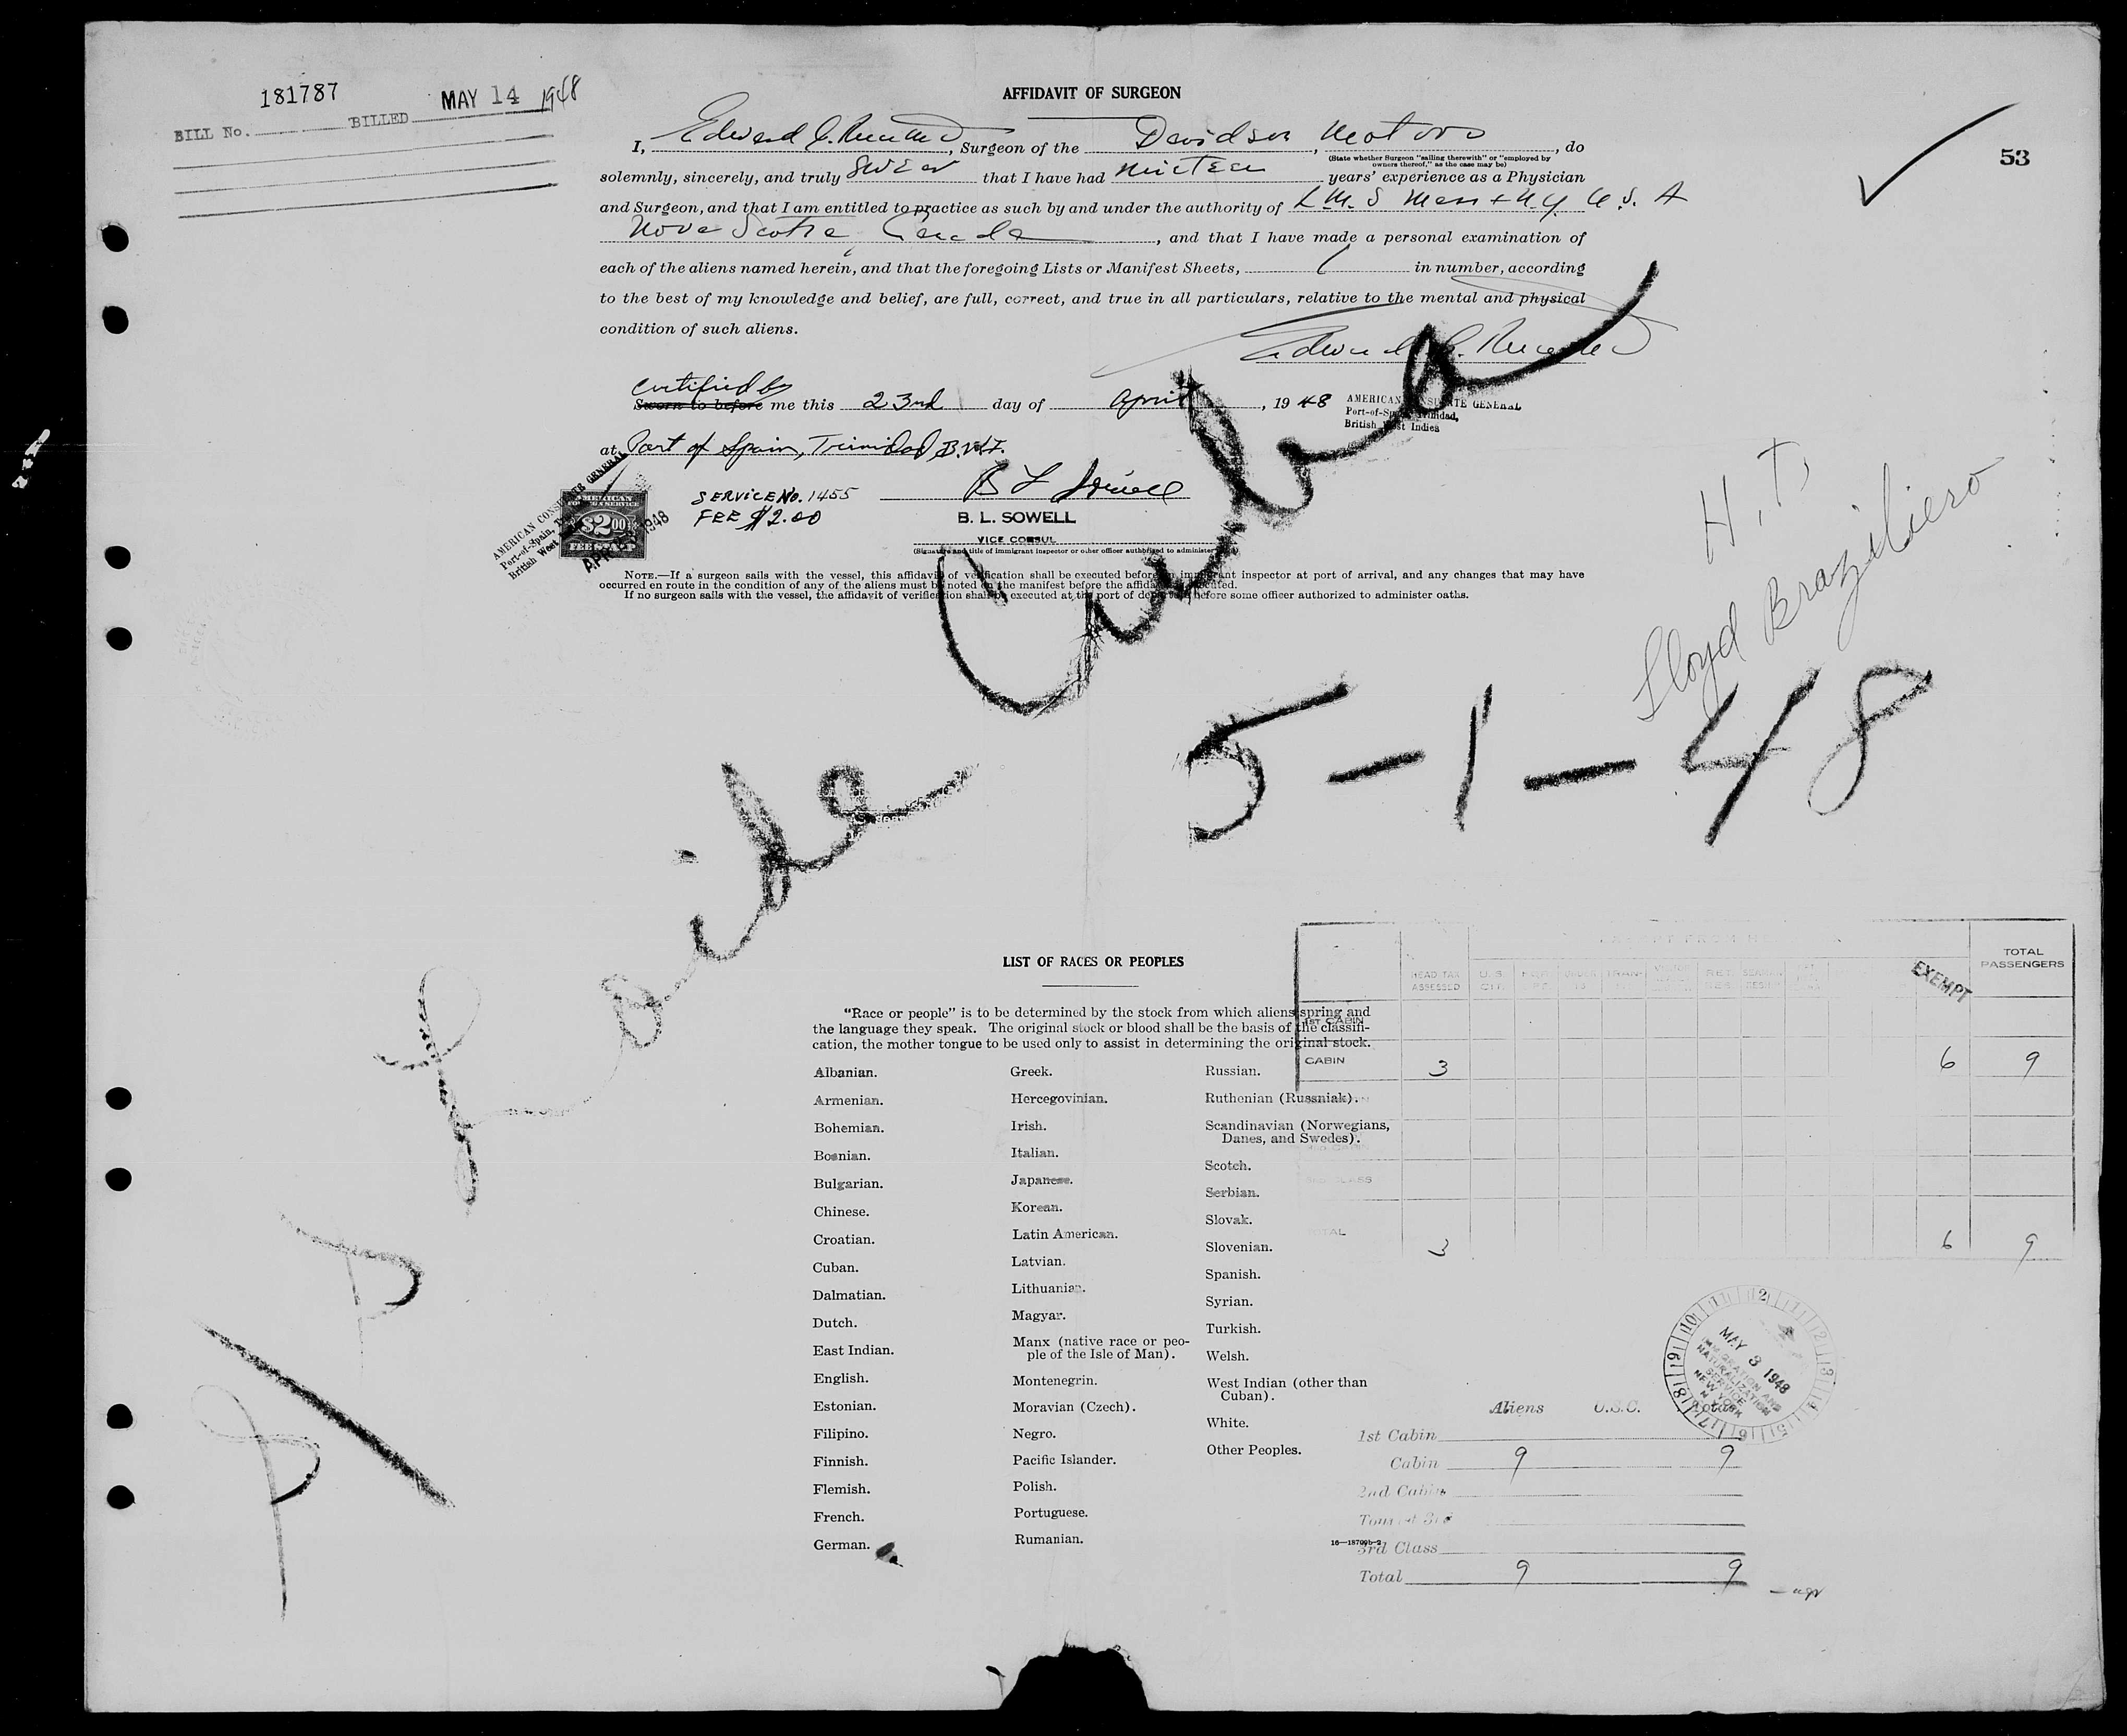 181787
MAY 14 1948
BILL No. BILLED
AFFIDAVIT OF SURGEON
53
I, Edward, Surgeon of the Davidson, do
(State whether Surgeon "sailing therewith" or "employed by owners thereof," as the case may be)
solemnly, sincerely, and truly swear that I have had years' experience as a Physician
and Surgeon, and that I am entitled to practice as such by and under the authority of U.S.A
Nova Scotia Canada, and that I have made a personal examination of
each of the aliens named herein, and that the foregoing Lists or Manifest Sheets, 1 in number, according
to the best of my knowledge and belief, are full, correct, and true in all particulars, relative to the mental and physical
condition of such aliens.
Edward
certified by
Sworn to before me this 23rd day of April, 1948
AMERICAN CONSULATE GENERAL
Port-of-Spain, Trinidad,
British West Indies
at Port of Spain, Trinidad B.W.I.
AMERICAN CONSULATE GENERAL
Port-of-Spain,
British West
AMERICAN
SERVICE
$2.00
FEE STAMP
APR 1948
SERVICE No. 1455
FEE $2.00
B L Sowell
B. L. SOWELL
VICE CONSUL
(Signature and title of immigrant inspector or other officer authorized to administer
NOTE.—If a surgeon sails with the vessel, this affidavit of verification shall be executed before an immigrant inspector at port of arrival, and any changes that may have
occurred en route in the condition of any of the aliens must be noted on the manifest before the affidavit is executed.
If no surgeon sails with the vessel, the affidavit of verification shall be executed at the port of departure before some officer authorized to administer oaths.
H.T.
Lloyd Braziliero
S/S Loide Cuba
5-1-48
LIST OF RACES OR PEOPLES
"Race or people" is to be determined by the stock from which aliens spring and
the language they speak. The original stock or blood shall be the basis of the classifi-
cation, the mother tongue to be used only to assist in determining the original stock.
Albanian.
Armenian.
Bohemian.
Bosnian.
Bulgarian.
Chinese.
Croatian.
Cuban.
Dalmatian.
Dutch.
East Indian.
English.
Estonian.
Filipino.
Finnish.
Flemish.
French.
German.
Greek.
Hercegovinian.
Irish.
Italian.
Japanese.
Korean.
Latin American.
Latvian.
Lithuanian.
Magyar.
Manx (native race or peo-
ple of the Isle of Man).
Montenegrin.
Moravian (Czech).
Negro.
Pacific Islander.
Polish.
Portuguese.
Rumanian.
Russian.
Ruthenian (Russniak).
Scandinavian (Norwegians,
Danes, and Swedes).
Scotch.
Serbian.
Slovak.
Slovenian.
Spanish.
Syrian.
Turkish.
Welsh.
West Indian (other than
Cuban).
White.
Other Peoples.
16—18700b-2
HEAD TAX ASSESSED
U.S. CIT.
EXEMPT
TOTAL PASSENGERS
1ST CABIN
CABIN 3 6 9
3RD CLASS
TOTAL 3 6 9
MAY 3 1948
IMMIGRATION AND
NATURALIZATION
SERVICE
NEW YORK
N.Y.
Aliens U.S.C. Total
1st Cabin
Cabin 9 9
2nd Cabin
Tourist 3rd
3rd Class
Total 9 9